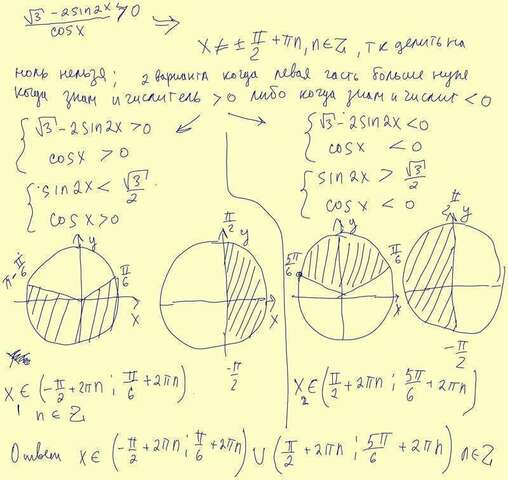 √3 - 2sin2x / cosx > 0
x ≠ ± π/2 + πn, n∈Z, т к делить на
ноль нельзя; 2 варианта когда левая часть больше нуля
когда знам и числитель > 0 либо когда знам и числит < 0
√3 - 2sin2x > 0
cosx > 0
sin2x < √3/2
cosx > 0
√3 - 2sin2x < 0
cosx < 0
sin2x > √3/2
cosx < 0
π - π/6
y
π/6
x
π/2
y
x
-π/2
5π/6
y
π/6
x
π/2
y
-π/2
x₁ ∈ (-π/2 + 2πn ; π/6 + 2πn)
n ∈ Z
x₂ ∈ (π/2 + 2πn ; 5π/6 + 2πn)
Ответ x ∈ (-π/2 + 2πn ; π/6 + 2πn) ∪ (π/2 + 2πn ; 5π/6 + 2πn) n∈Z